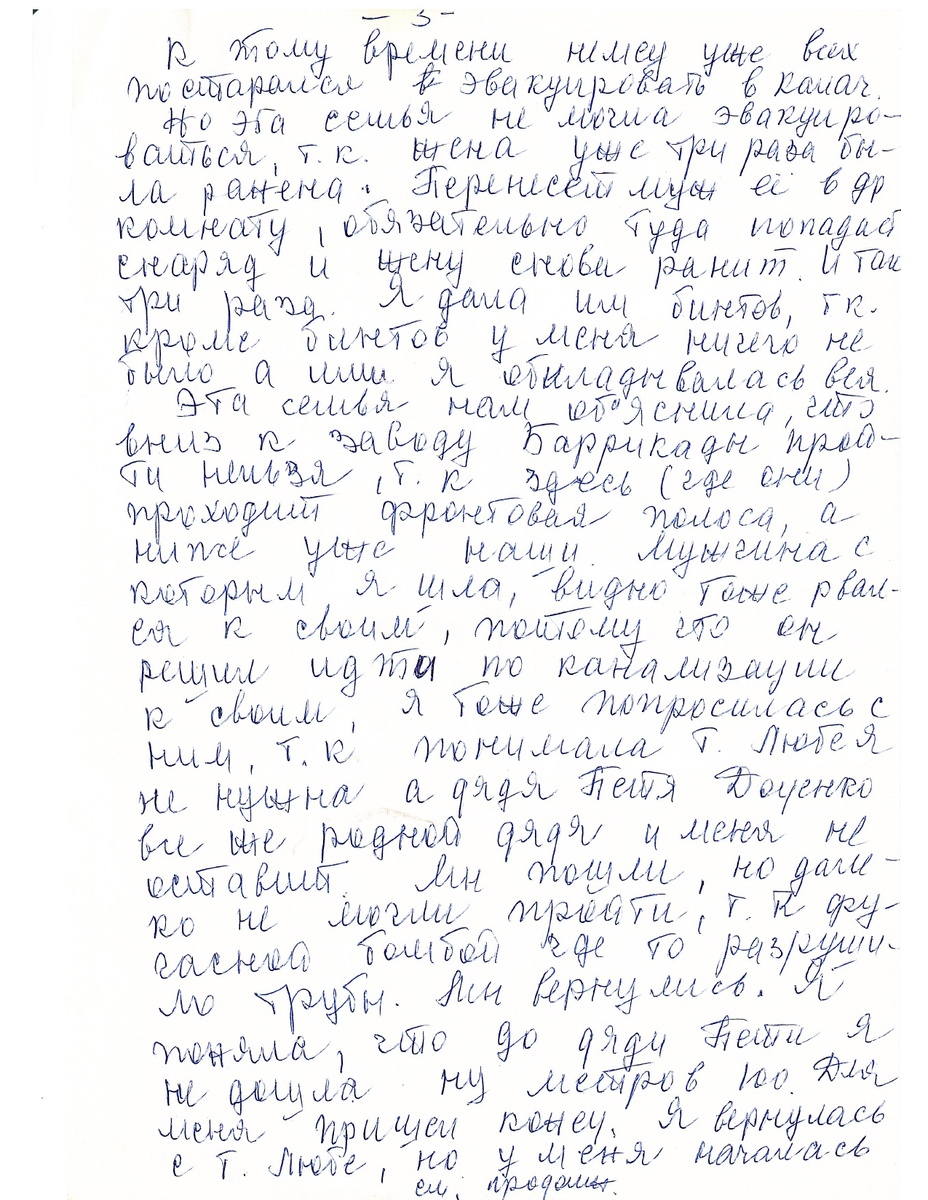 - 3 -
К тому времени немец уже всех
постарался эвакуировать в Калач.
Но эта семья не могла эвакуиро-
ваться, т.к. жена уже три раза бы-
ла ранена. Перенесет муж её в др
комнату, обязательно туда попадай
снаряд и жену снова ранит. И так
три раза. Я дала им бинтов, т к.
кроме бинтов у меня ничего не
было а ими я обкладывалась вся.
Эта семья нам об'яснила, что
вниз к заводу Баррикады прой-
ти нельзя, т. к здесь (где они)
проходит фронтовая полоса, а
ниже уже наши. Мужчина с
которым я шла, видно тоже рвал-
ся к своим, поэтому что он
решил идти по канализации
к своим, я тоже попросилась с
ним, т. к понимала т. Любе я
не нужна а дядя Петя Доценко
все же родной дядя и меня не
оставит. Мы пошли, но дале-
ко не могли пройти, т. к фу-
гасной бомбой где то разруши-
ло трубы. Мы вернулись. Я
поняла, что до дяди Пети я
не дошла ну метров 100. Для
меня пришел конец. Я вернулась
с т. Любе, но у меня началась
см. продолж.